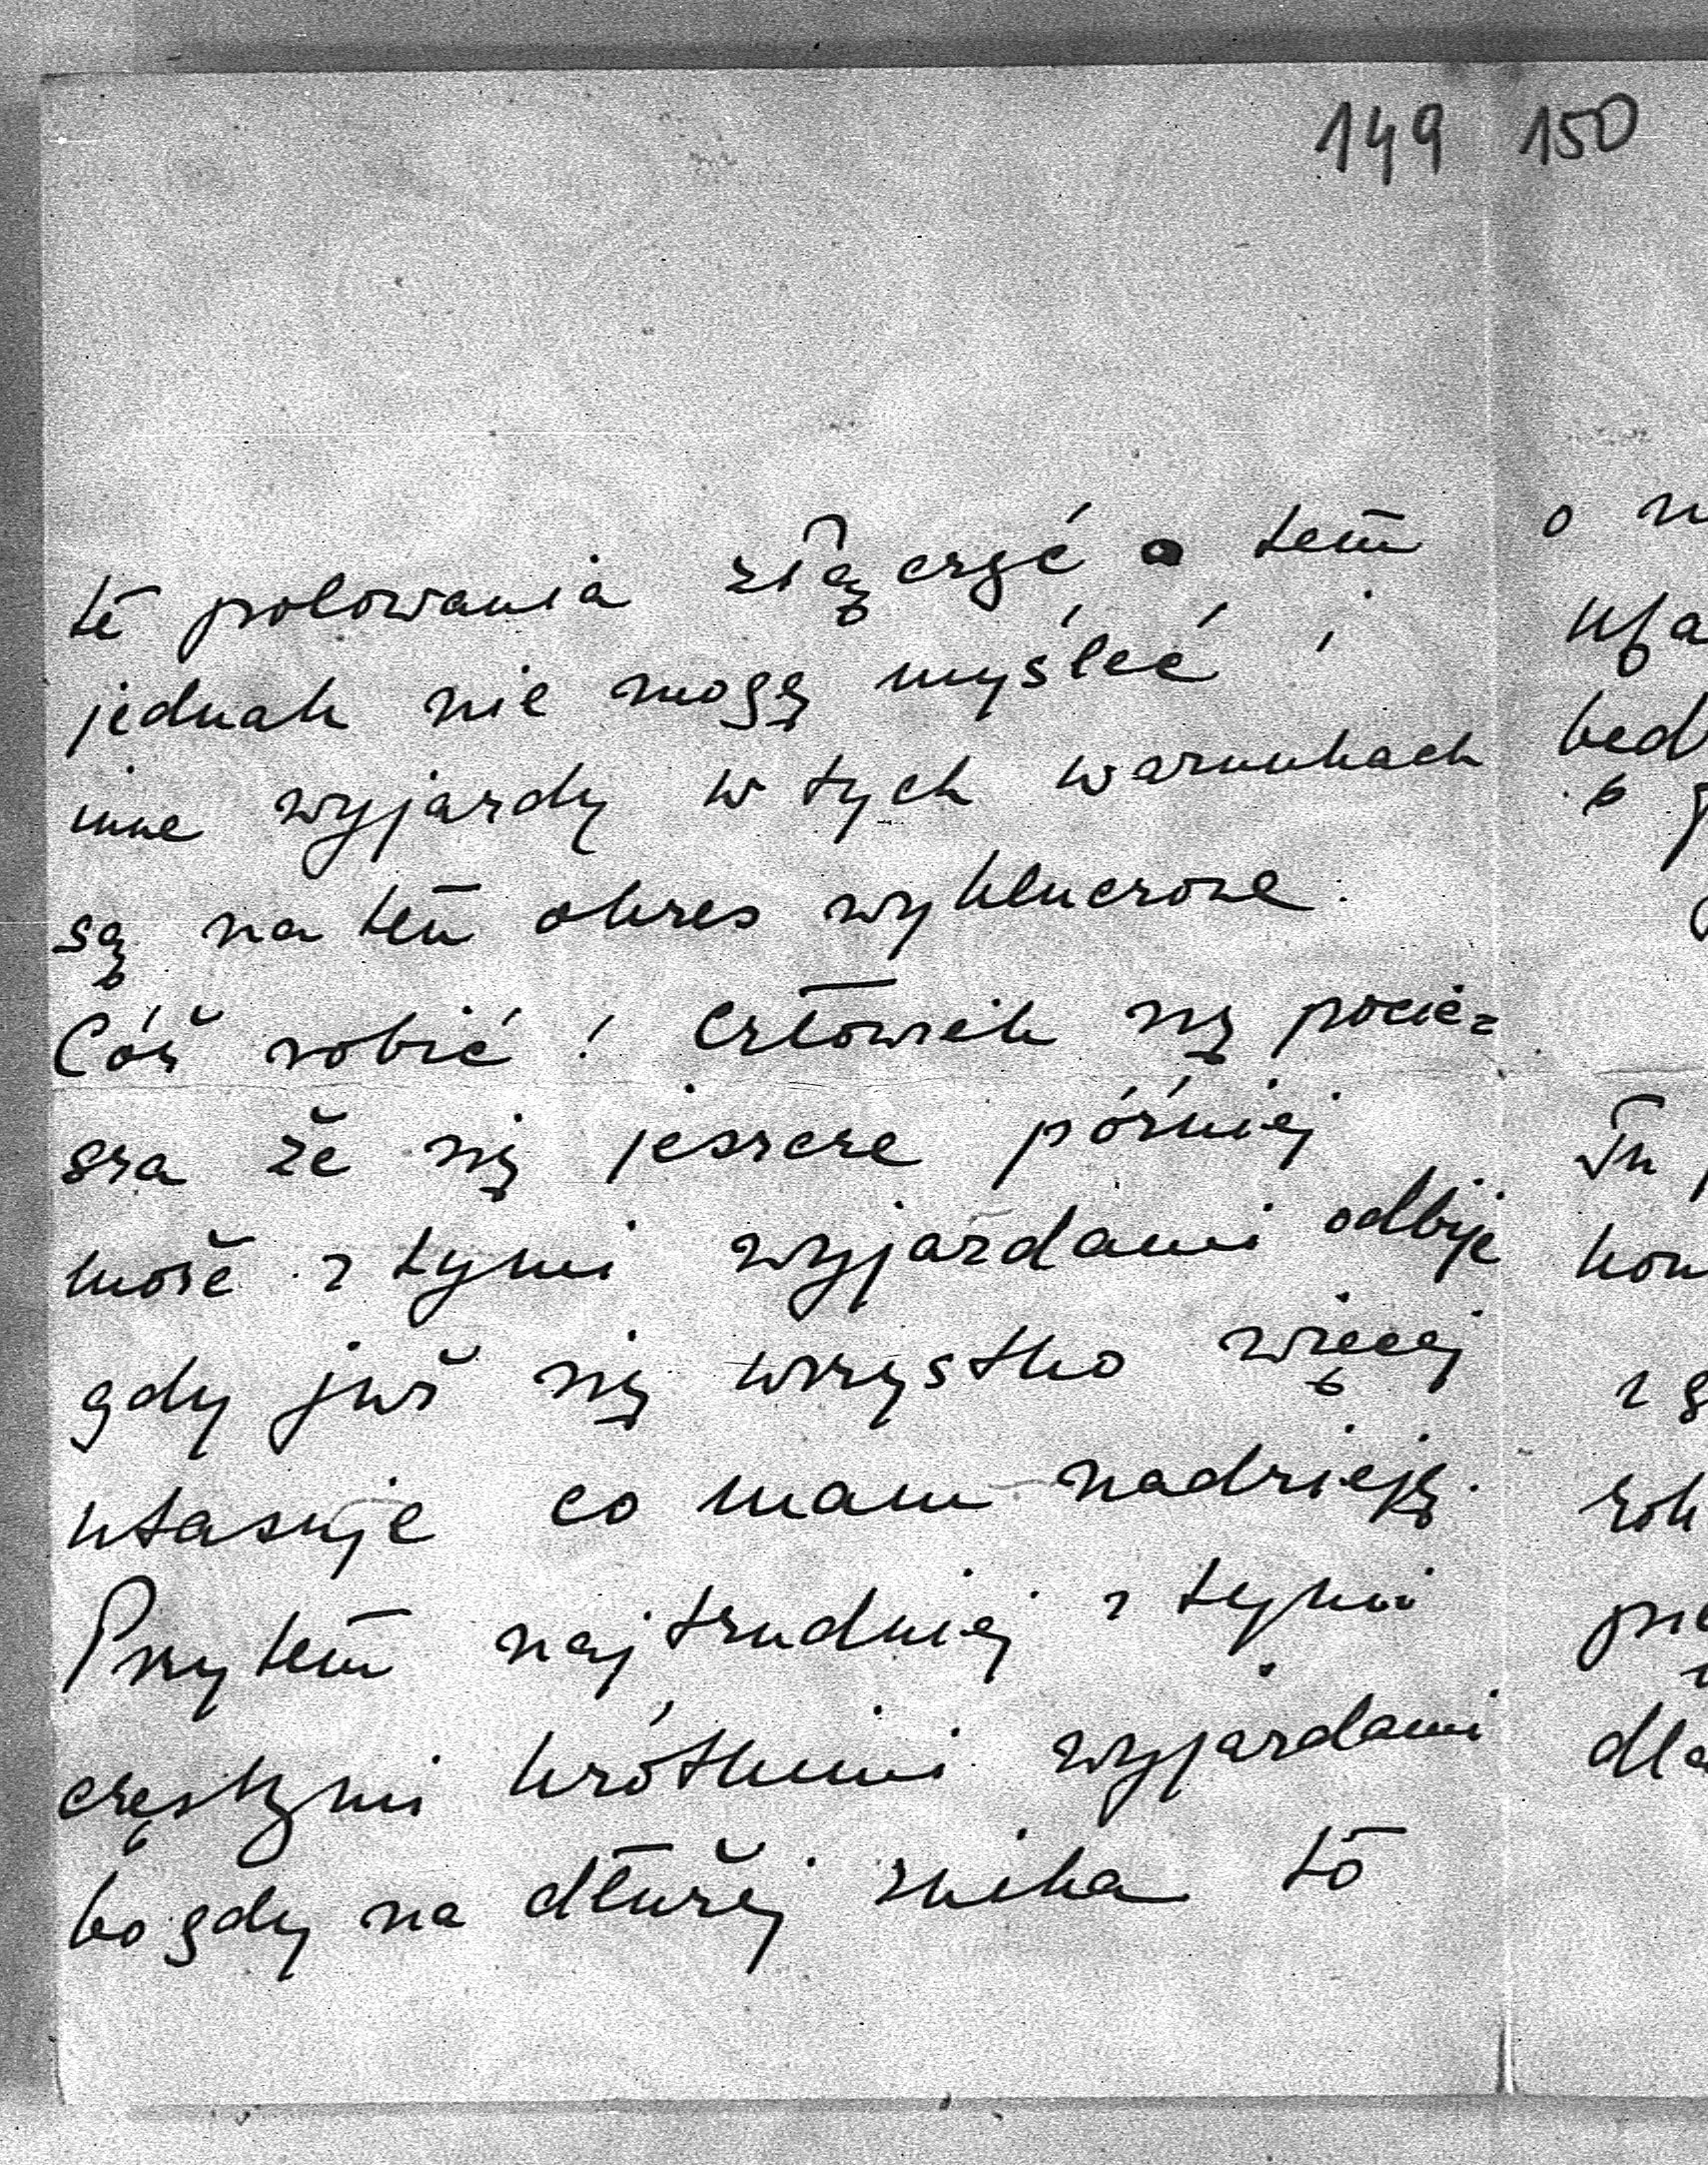 149 150
te polowania złączyć o tem
jednak nie mogę myśleć i
inne wyjazdy w tych warunkach
są na ten okres wykluczone.
Cóż robić! Człowiek się pocie=
sza że się jeszcze później
może z tymi wyjazdami odbije
gdy już się wszystko więcej
utasuje co mam nadzieję.
Przytem najtrudniej z tymi
częstymi krótkimi wyjazdami
bo gdy na dłużej znika to
o
Tu
dla